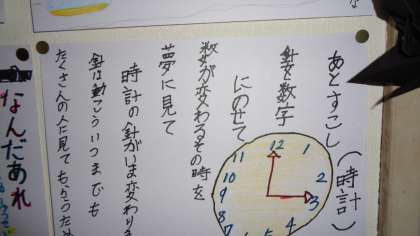 あとすこし(時計)
針を数字
にのせて
数が変わるその時を
夢に見て
時計の針がいま変わり
針は動こういつまでも
たくさんの人に見てもらうため
なんだあれ
12
1
2
3
5
6
7
8
9
10
11